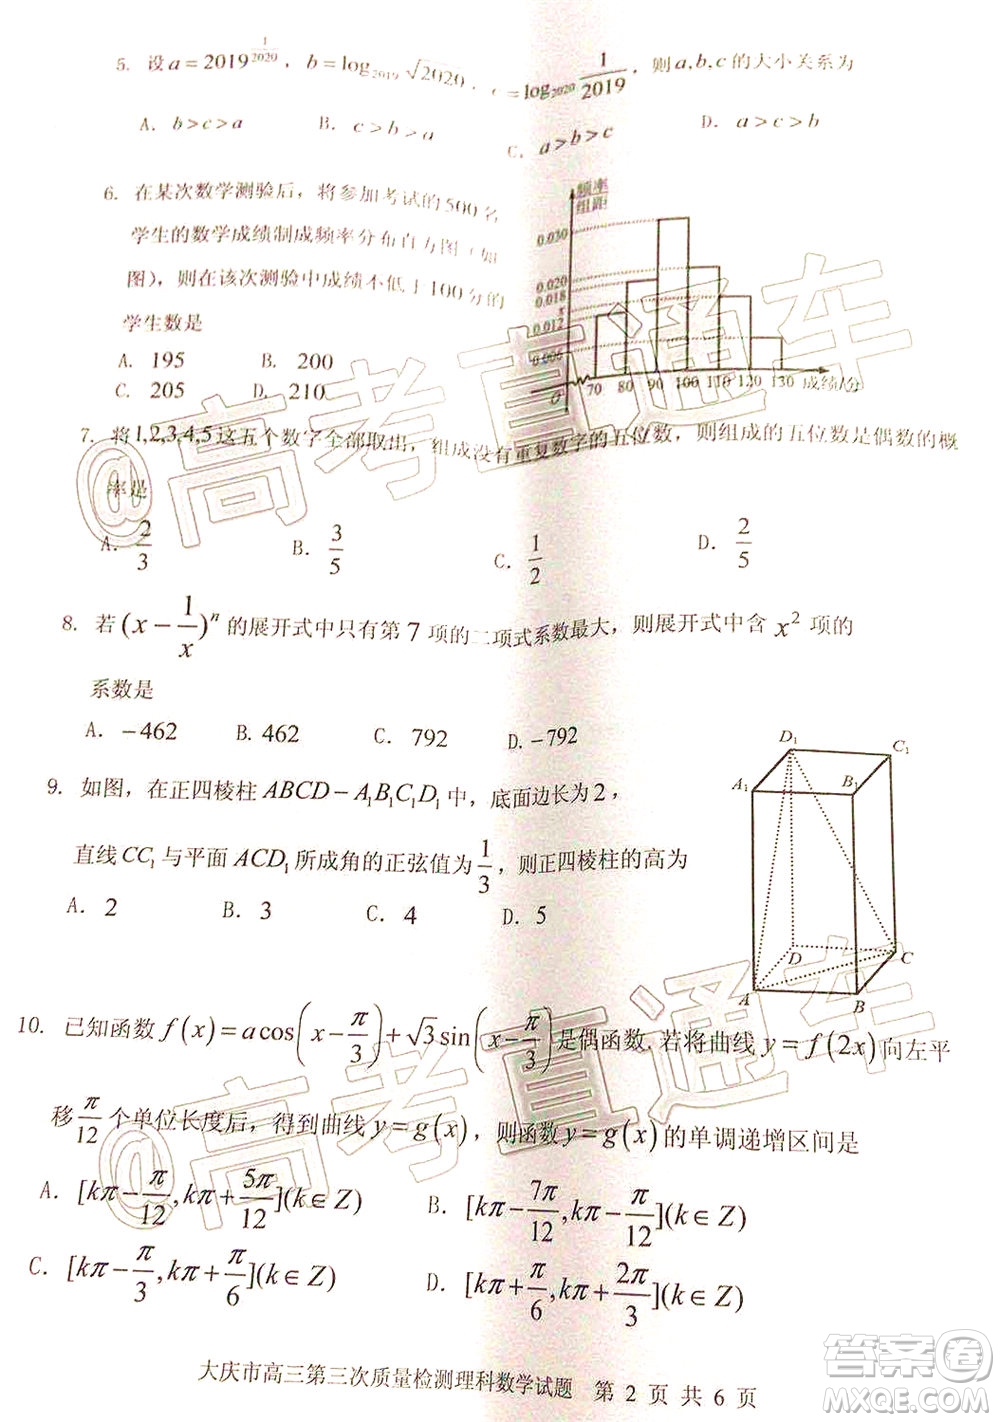 5. 设 a = 2019^{1/2020}, b = log_{2019}√2020, c = log_{2020} 1/2019, 则 a,b,c 的大小关系为
A. b > c > a  B. c > b > a  C. a > b > c  D. a > c > b
6. 在某次数学测验后，将参加考试的500名
学生的数学成绩制成频率分布直方图（如
图），则在该次测验中成绩不低于100分的
学生数是
A. 195  B. 200
C. 205  D. 210
频率
组距
0.030
0.020
0.018
x
0.012
0.006
O 70 80 90 100 110 120 130 成绩/分
7. 将1,2,3,4,5这五个数字全部取出，组成没有重复数字的五位数，则组成的五位数是偶数的概
率是
A. 2/3  B. 3/5  C. 1/2  D. 2/5
8. 若 (x − 1/x)^n 的展开式中只有第 7 项的二项式系数最大，则展开式中含 x² 项的
系数是
A. −462  B. 462  C. 792  D. −792
9. 如图，在正四棱柱 ABCD − A₁B₁C₁D₁ 中，底面边长为 2，
直线 CC₁ 与平面 ACD₁ 所成角的正弦值为 1/3，则正四棱柱的高为
A. 2  B. 3  C. 4  D. 5
D₁
C₁
A₁
B₁
D
C
A
B
10. 已知函数 f(x) = a cos(x − π/3) + √3 sin(x − π/3) 是偶函数. 若将曲线 y = f(2x) 向左平
移 π/12 个单位长度后，得到曲线 y = g(x)，则函数 y = g(x) 的单调递增区间是
A. [kπ − π/12, kπ + 5π/12](k ∈ Z)  B. [kπ − 7π/12, kπ − π/12](k ∈ Z)
C. [kπ − π/3, kπ + π/6](k ∈ Z)  D. [kπ + π/6, kπ + 2π/3](k ∈ Z)
大庆市高三第三次质量检测理科数学试题 第 2 页 共 6 页
@高考直通车
@高考直通车
答案圈
MXQE.COM